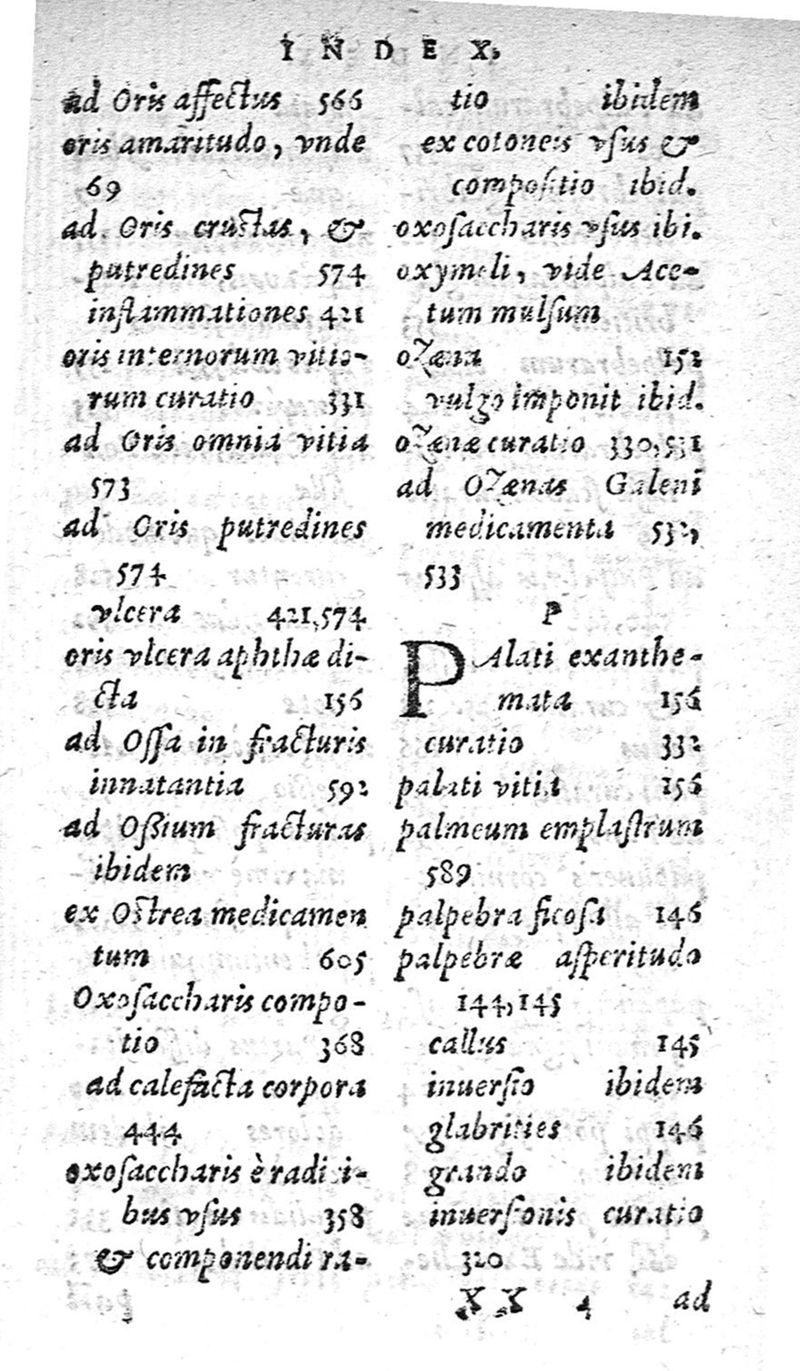 INDEX.
ad Oris affectus 566
oris amaritudo, vnde
69
ad Oris crustas, &
putredines 574
inflammationes 421
oris internorum vitio-
rum curatio 331
ad Oris omnia vitia
573
ad Oris putredines
574
vlcera 421,574
oris vlcera aphthæ di-
cta 156
ad Ossa in fracturis
innatantia 592
ad Ossium fracturas
ibidem
ex Ostrea medicamen
tum 605
Oxosaccharis compo-
tio 368
ad calefacta corpora
444
oxosaccharis è radici-
bus vsus 358
& componendi ra-
tio ibidem
ex cotoneis vsus &
compositio ibid.
oxosaccharis vsus ibi.
oxymeli, vide Ace-
tum mulsum
ozæna 152
vulgo imponit ibid.
ozænæ curatio 330,531
ad Ozænas Galeni
medicamenta 532,
533
P
PAlati exanthe-
mata 156
curatio 332
palati vitia 156
palmeum emplastrum
589
palpebra ficosa 146
palpebræ asperitudo
144,145
callus 145
inuersio ibidem
glabrities 146
grando ibidem
inuersionis curatio
320
XX 4 ad